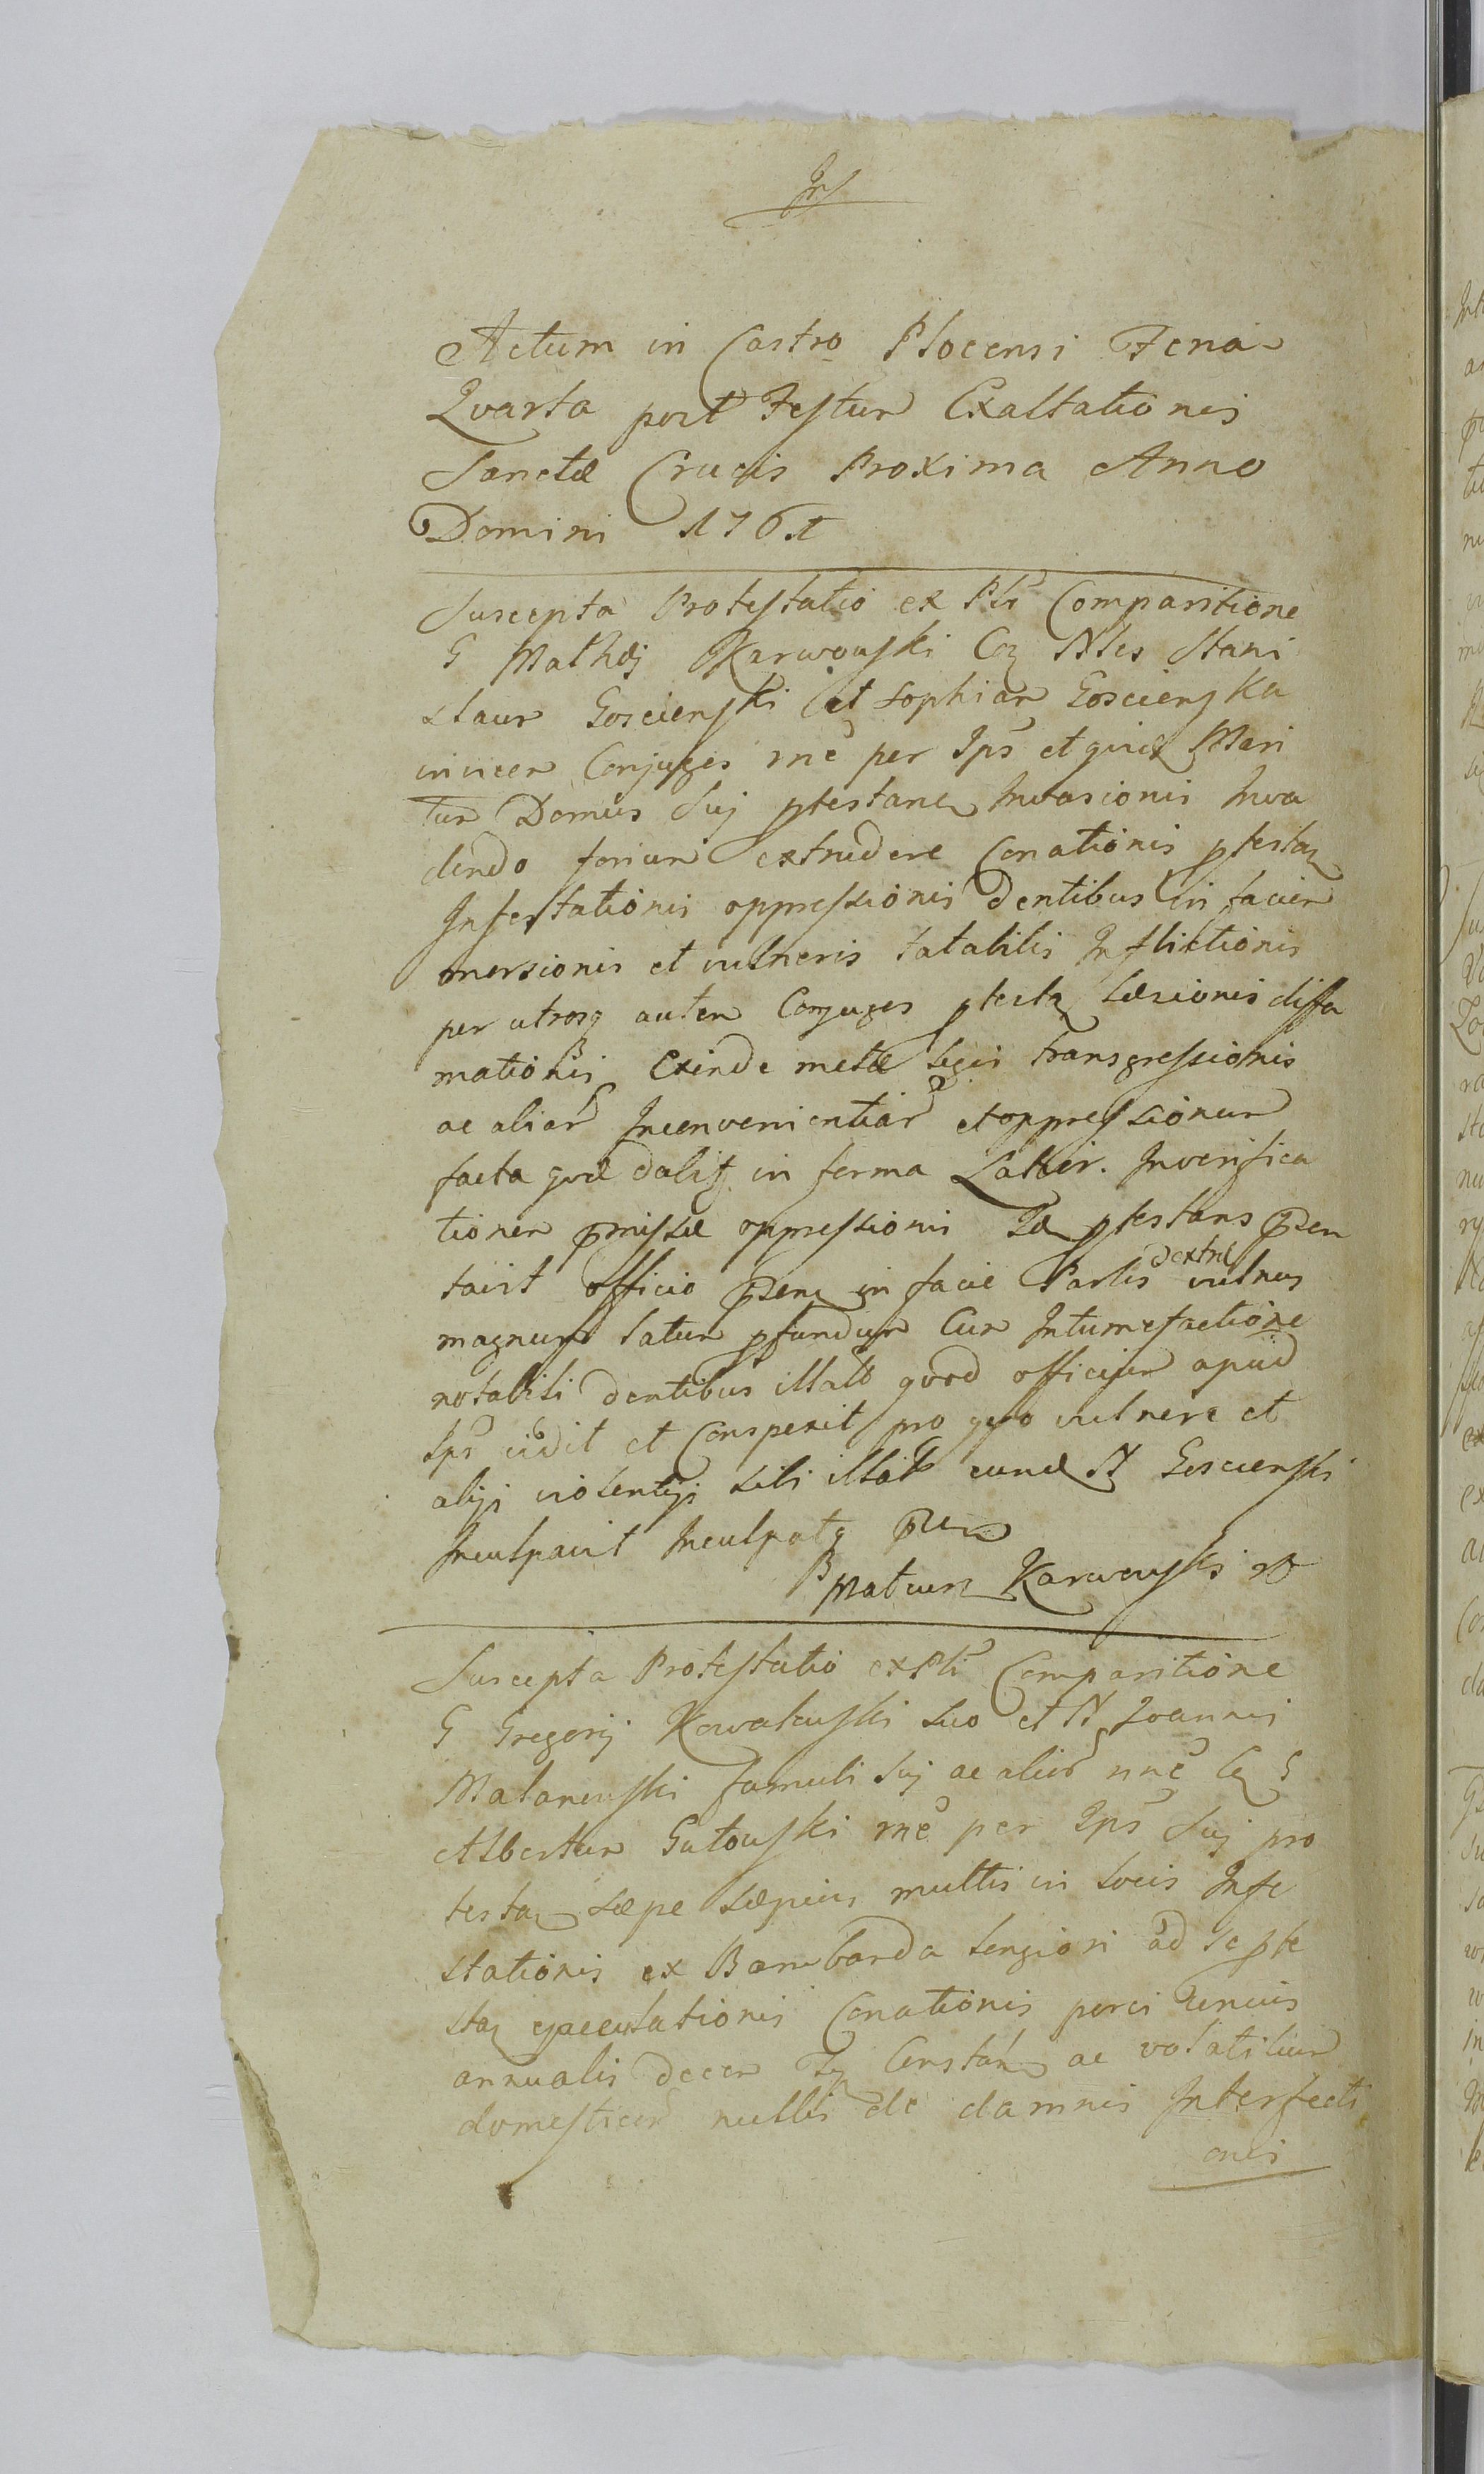 Actum in Castro Plocensi Feria
Quarta post Festum Exaltationis
Sanctæ Crucis Proxima Anno
Domini 1761
Suscepta Protestatio ex Psti Comparitione
G Mathæj Karwowski Coz Nles Stani
slaum Goscienski et Sophiam Goscienska
invicem Conjuges rne per Ips et quidẽ Mari
tum Domus Suj ptestanẽ Invasionis Inva
dendo forium extrudere Conationis ptestaz
Infestationis oppressionis dentibus in faciem
morsionis et vulneris latabilis Inflictionis
per utrosq autem Conjuges ptestaz Læsionis diffa
mationis Exinde metæ legis transgressionis
ac aliar Inconvenientiar et oppressionum
facta in forma Latior. Inverifica
tionem pmissæ oppressionis Idem ptestans pzen
tavit officio pzenz in facie Partis dextræ vulnus
magnum latum pfundum Cum Intumefactione
notabili dentibus illato quod officium apud
Ips vidit et Conspexit pro quo vulnere et
alijs violentijs sibi illatis eund N Goscienski
Inculpavit Inculpatq pzen
Mateusz Karwowski
Suscepta Protestatio ex Psti Comparitione
G Gregorij Kowalewski suo et N Joannis
Malanowski famuli suj ac alior nne Coz G
Albertum Gutowski rne per Ips Suj pro
testaz sæpe sæpius multis in locis Infe
stationis ex Bombarda longiori ad se pte
staz ejaculationis Conationis porci unius
annualis decem Constan ac volatilium
domesticor nullis de damnis Interfecti
onis